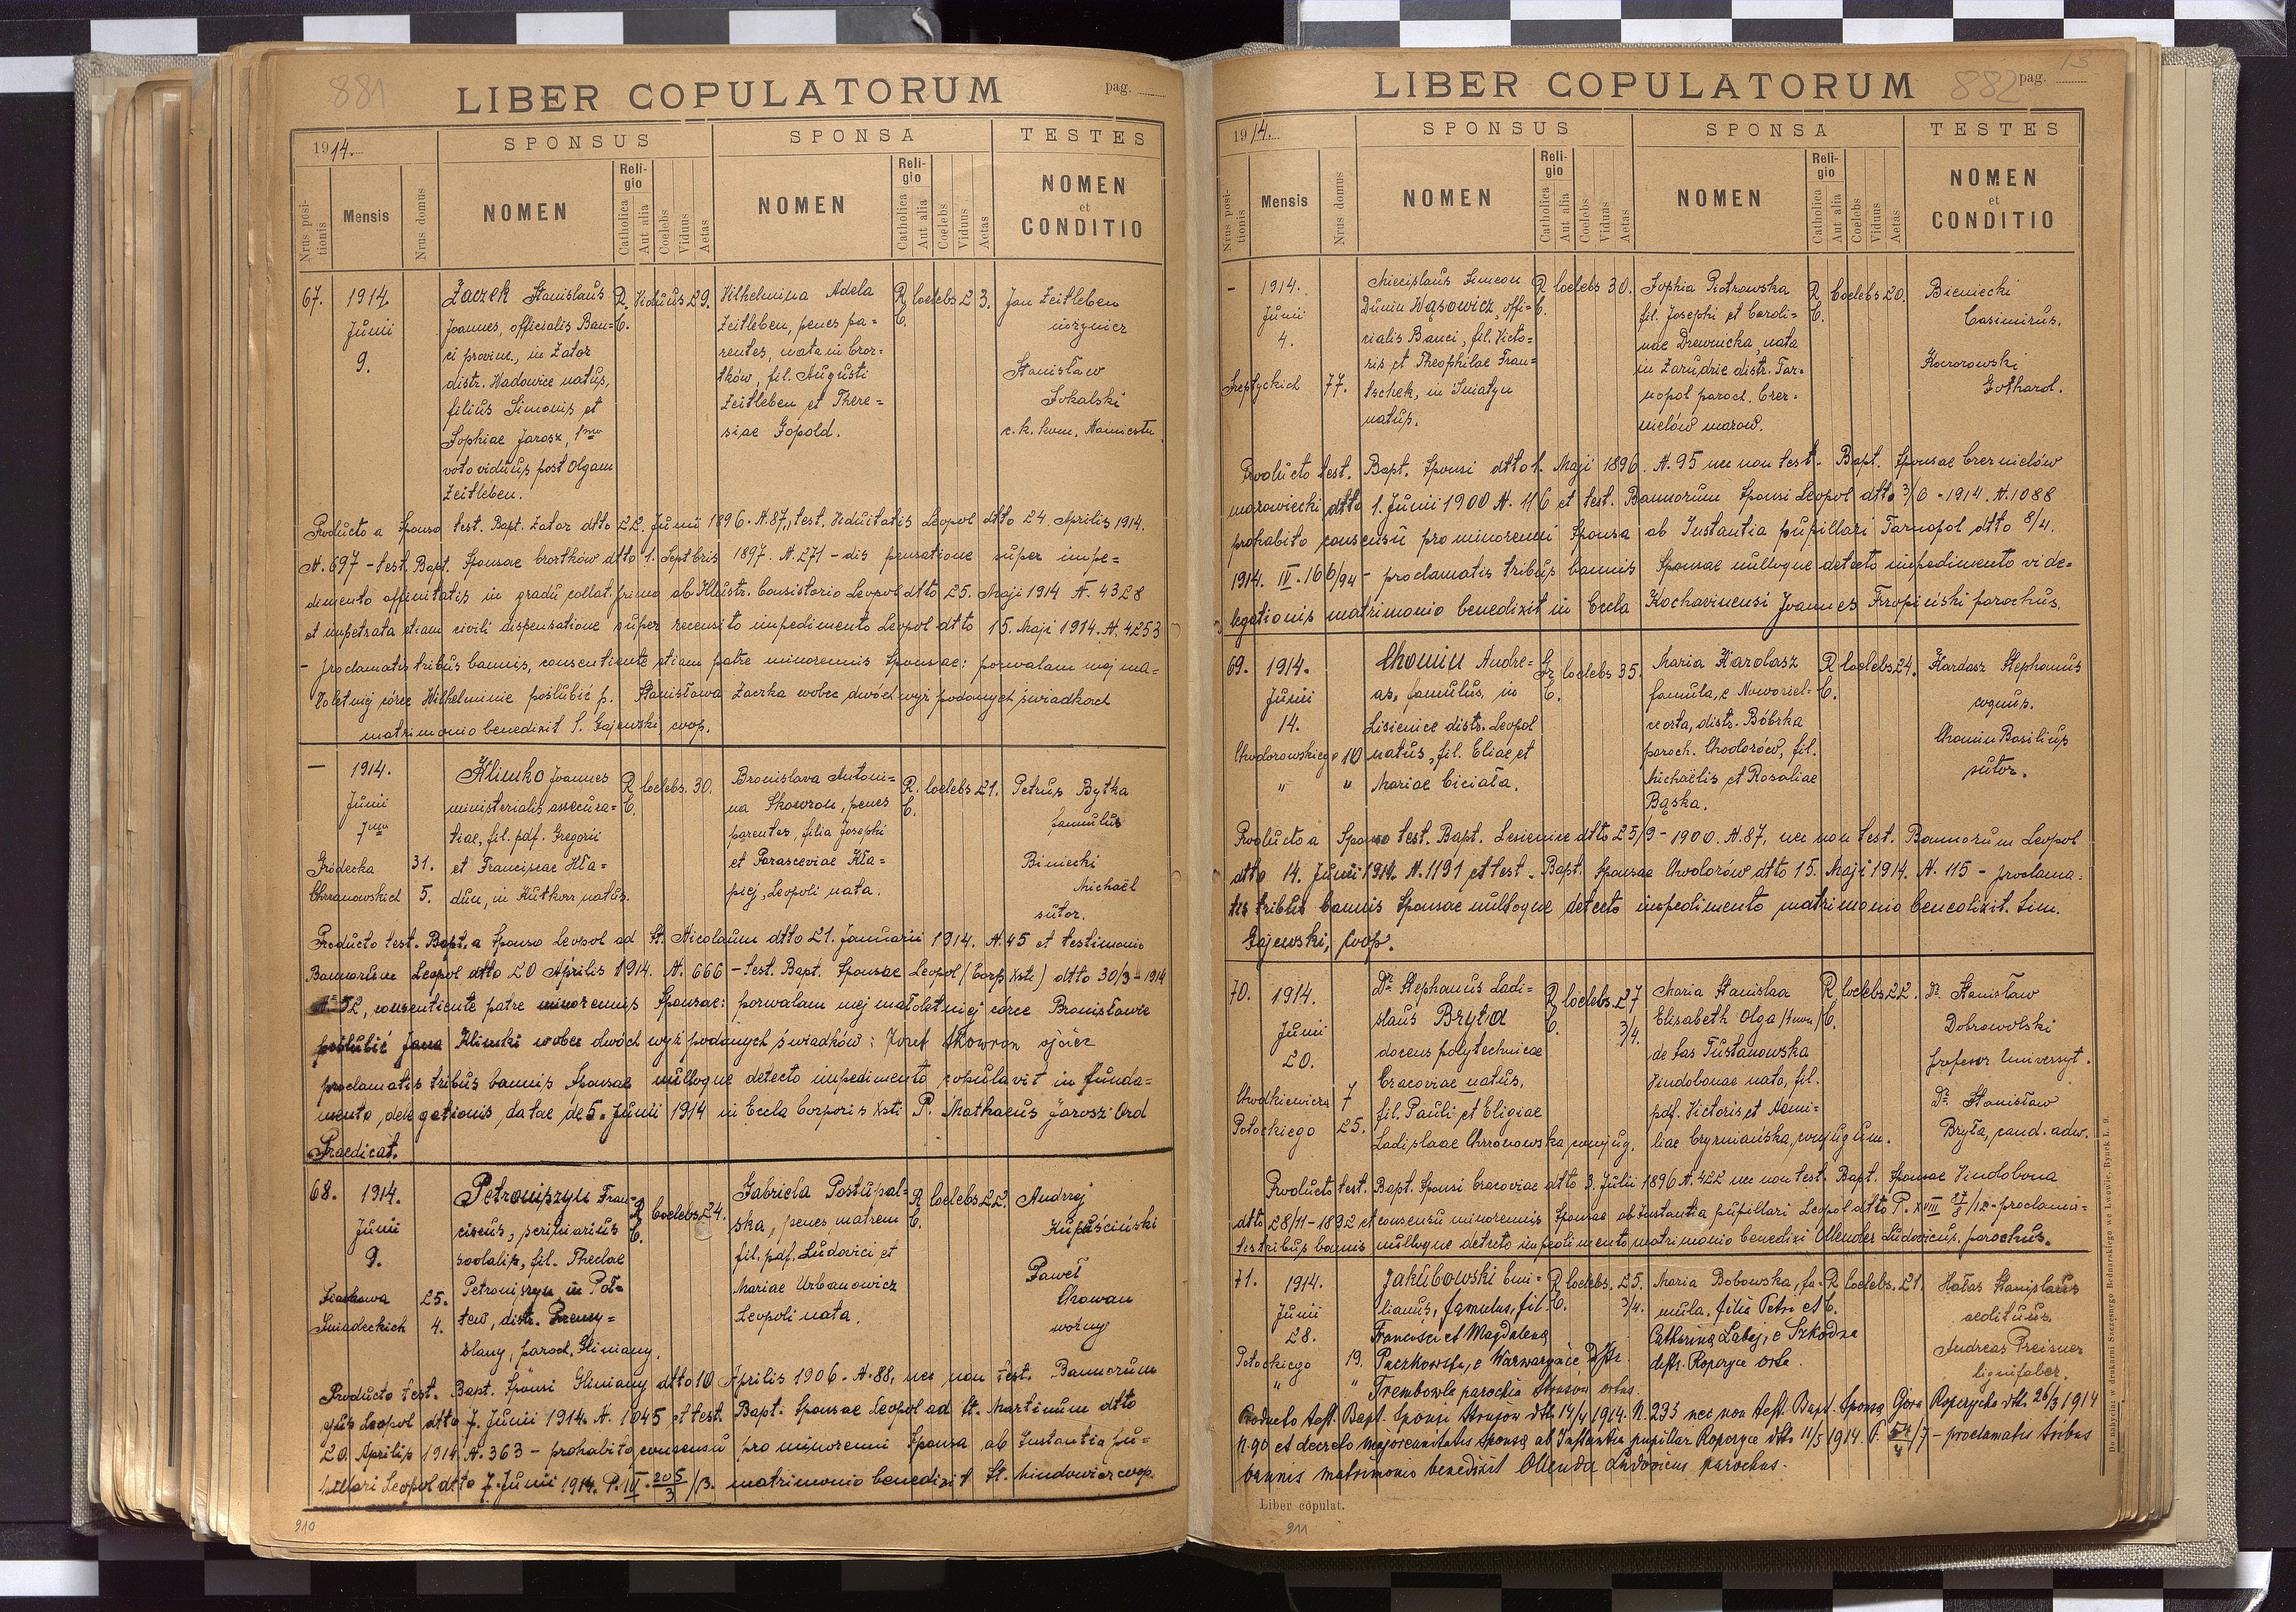 881
LIBER COPULATORUM
pag.
1914.
SPONSUS
SPONSA
TESTES
Nrus positionis
Mensis
Nrus domus
NOMEN
Religio
Catholica
Aut alia
Coelebs
Viduus
Aetas
NOMEN
Religio
Catholica
Aut alia
Coelebs
Viduus
Aetas
NOMEN
et
CONDITIO
67.
1914.
Junii
9.
Żaczek Stanislaus
Joannes, officialis Ban=
ci provinc., in Zator
distr. Wadowice natus,
filius Simonis et
Sophiae Jarosz, 1mo
voto viduus post Olgam
Zeitleben.
R.
C.
Viduus
29.
Wilhelmina Adela
Zeitleben, penes pa=
rentes, nata in Czor=
tków, fil. Augusti
Zeitleben et There=
siae Gopold.
R.
C.
Coelebs
23.
Jan Zeitleben
Stanisław
Sokalski
c. k. kom. Namiestn.
Producto a Sponso test. Bapt. Zator dtto 22. Junii 1896. N. 87, test. Viduitatis Leopol dtto 24 Aprilis 1914.
N. 697 - test. Bapt. Sponsae Czortków dtto 1. Septbris 1897. N. 271 - dispensatione super impe=
dimento affinitatis in gradu collat. primo ab Illustr. Consistorio Leopol dtto 25. Maji 1914 N. 4328
et impetrata etiam civili dispensatione super recensito impedimento Leopol dtto 15. Maji 1914. N. 4253
- proclamatis tribus bannis, consentiente etiam patre minorennis Sponsae: pozwalam mej ma=
łoletniej córce Wilhelminie poślubić p. Stanisława Żaczka wobec dwóch wyż podanych świadkach
matrimonio benedixit S. Gajewski, coop.
—
1914.
Junii
7mo
Gródecka 31.
Chrzanowskich 5.
Klimko Joannes
ministerialis assecura=
tiae, fil. pdf. Gregorii
et Franciscae Kła=
dun, in Kutkorz natus.
R.
C.
coelebs.
30.
Bronislava Antoni=
na Skowron, penes
parentes, filia Josephi
et Parasceviae Kła=
piej, Leopoli nata.
R.
C.
Coelebs
21.
Petrus Bytka
famulus
Biniecki
Michaël
sutor.
Producto test. Bapt. a Sponso Leopol ad St. Nicolaum dtto 21. Januarii 1914. N. 45 et testimonio
Bannorum Leopol dtto 20 Aprilis 1914. N. 666 - test. Bapt. Sponsae Leopol (Corp. Xsti) dtto 30/3 - 1914
N= 52, consentiente patre minorennis Sponsae: pozwalam mej małoletniej córce Bronisławie
poślubić Jana Klimki wobec dwóch wyż podanych świadków: Józef Skowron ojciec
proclamatis tribus bannis Sponsae nulloque detecto impedimento copulavit in funda=
mento, delegationis datae de 5. Junii 1914 in Eccla Corporis Xsti P. Mathaeus Jaroszi Ord
Praedicat.
68.
1914.
Junii
9.
25.
Śniadeckich 4.
Petroniszyn Fran=
ciscus, scriniarius
sodalis, fil. Theclae
Petroniszyn in Poł=
tew, distr. Przemy=
slany, paroch. Gliniany.
R.
C.
Coelebs
24.
Gabriela Postupal=
ska, penes matrem
fil. pdf. Ludovici et
Mariae Urbanowicz
Leopoli nata.
R.
C.
Coelebs
22.
Andrzej
Kupuściński
Paweł
Chowan
woźny
Producto test. Bapt. Sponsi Gliniany dtto 10 Aprilis 1906. N. 88, nec non test. Bannorum
ejus Leopol dtto 7. Junii 1914. N. 1045 et test. Bapt. Sponsae Leopol ad St. Martinum dtto
20. Aprilis 1914. N. 363 - prohabito consensu pro minorenni Sponsa ab Instantia pu=
pillari Leopol dtto 7. Junii 1914. P. IV. 205/3 /13. matrimonio benedixit St. Mindowicz coop.
910
LIBER COPULATORUM
882
pag. 13
1914.
SPONSUS
SPONSA
TESTES
Nrus positionis
Mensis
Nrus domus
NOMEN
Religio
Catholica
Aut alia
Coelebs
Viduus
Aetas
NOMEN
Religio
Catholica
Aut alia
Coelebs
Viduus
Aetas
NOMEN
et
CONDITIO
-
1914.
Junii
4.
Szeptyckich 77.
Miecislaus Simeon
Dunin Wąsowicz, offi=
cialis Banci, fil. Victo=
ris et Theophilae Fran=
tschek, in Sniatyn
natus.
R.
C.
Coelebs
30.
Sophia Piotrowska
fil. Josephi et Caroli=
nae Drewnicka, nata
in Zarudzie distr. Tar=
nopol paroch. Czer=
nielów mazow.
R.
C.
Coelebs
20.
Bieniecki
Casimirus.
Koczorowski
Gothard.
Producto test. Bapt. Sponsi dtto 1. Maji 1896. N. 95 nec non test. Bapt. Sponsae Czernielów
mazowiecki dtto 1. Junii 1900 N. 116 et test. Bannorum Sponsi Leopol dtto 3/6 - 1914. N. 1088
prohabito consensu pro minorenni Sponsa ab Instantia pupillari Tarnopol dtto 8/4.
1914. IV. 166/94 - proclamatis tribus bannis Sponsae nulloque detecto impedimento vi de=
legationis matrimonio benedixit in Eccla Kochavinensi Joannes Trzopiński parochus.
69.
1914.
Junii
14.
Chodorowskiego 10
" "
Chomin Andre=
as, famulus, in
Lisienice distr. Leopol
natus, fil. Eliae et
Mariae Ciciała.
Gr.
C.
Coelebs
35.
Maria Kardasz
famula, e Nowosiel=
ce orta, distr. Bóbrka
paroch. Chodorów, fil.
Michaëlis et Rosaliae
Bąska.
R.
C.
Coelebs
24.
Kardasz Stephanus
coquus.
Chomin Basilius
sutor.
Producto a Sponso test. Bapt. Lesienice dtto 25/9 - 1900. N. 87, nec non test. Bannorum Leopol
dtto 14. Junii 1914. N. 1191 et test. Bapt. Sponsae Chodorów dtto 15. Maji 1914. N. 115 - proclama=
tis tribus bannis Sponsae nulloque detecto impedimento matrimonio benedixit. Sim.
Gajewski, Coop.
70.
1914.
Junii
20.
Chodkiewicza 7
Potockiego 25.
Dr. Stephanus Ladi=
slaus Bryła
docens polytechnicae
Cracoviae natus,
fil. Pauli et Eligiae
Ladislaae Chrzonowska conjug.
R.
C.
Coelebs.
27
3/4.
Maria Stanislaa
Elisabeth Olga
de Sas Tustanowska
Vindobonae nata, fil.
pdf. Victoris et Aemi=
liae Czyrniańska, conjugum.
R.
C.
Coelebs
22.
Dr. Stanisław
Dobrowolski
profesor Uniwersyt.
Dr. Stanisław
Bryła, cand. adw.
Producto test. Bapt. Sponsi Cracoviae dtto 3. Julii 1896 N. 422 nec non test. Bapt. Sponsae Vindobona
dtto 28/11 - 1892 et consensu minorennis Sponsae ab Instantia pupillari Leopol dtto P. XVIII /12 - proclama=
tis tribus bannis nulloque detecto impedimento matrimonio benedixi Ollender Ludovicus, parochus.
71.
1914.
Junii
28.
Potockiego 19.
" "
Jakubowski Emi=
lianus, famulus, fil.
Francisci et Magdalenę
Paczkowska, e Warwaryńce distr.
Trembowla parochia Strusów ortus.
R.
C.
Coelebs.
25.
3/4.
Maria Bobowska, fa=
mula, filia Petri et
Catharinę Łabaj, e Szkodna
distr. Ropczyce orta.
R.
C.
Coelebs.
21.
Hałas Stanislaus
aedituus.
Andreas Preisner
lignifaber.
Producto test. Bapt. Sponsi Strusów dtto 14/4 1914. N. 235 nec non test. Bapt. Sponsę Góra Ropczycka dtto 26/3 1914
N. 90 et decreto majorennitatis Sponsę ab Instantia pupillar Ropczyce dtto 11/5 1914. P. 54/4 /7 - proclamatis tribus
bannis matrimonio benedixit Ollender Ludovicus parochus.
Liber copulat.
911
Do nabycia w drukarni Szczęsnego Bednarskiego we Lwowie, Rynek L. 9.